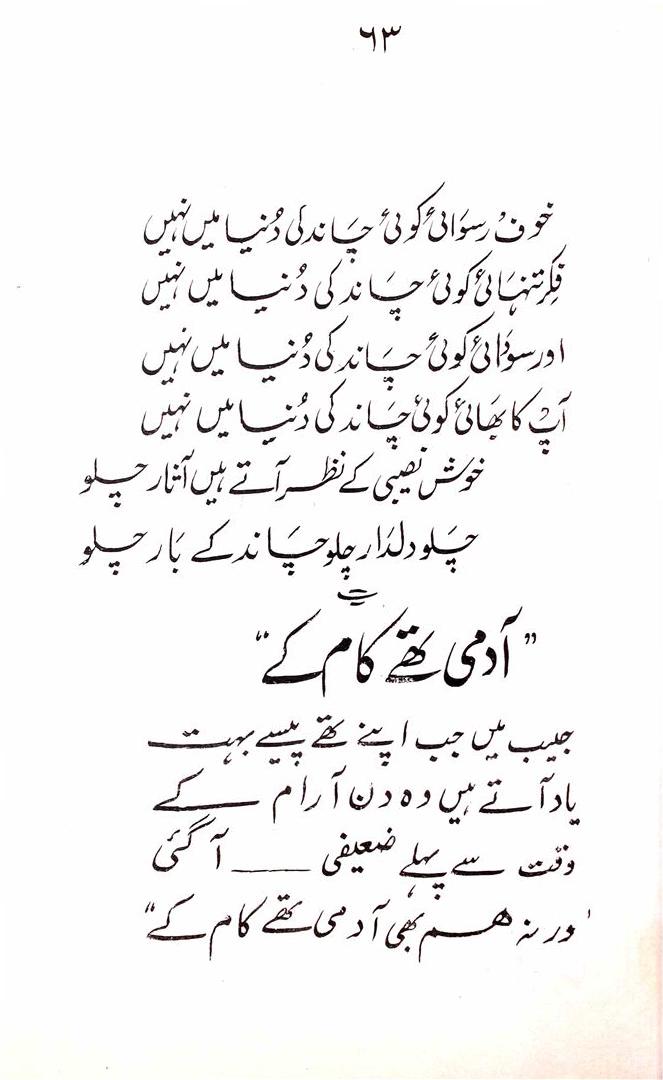 ۶۳
خوف رسوائی کوئی چاند کی دُنیا میں نہیں
فکر تنہائی کوئی چاند کی دُنیا میں نہیں
اور سودائی کوئی چاند کی دُنیا میں نہیں
آپ کا بھائی کوئی چاند کی دُنیا میں نہیں
خوش نصیبی کے نظر آتے ہیں آثار چلو
چلو دلدار چلو چاند کے پار چلو
"آدمی تھے کام کے"
جیب میں جب اپنے تھے پیسے بہت
یاد آتے ہیں وہ دن آرام کے
وقت سے پہلے ضعیفی آ گئی
'ورنہ ہم بھی آدمی تھے کام کے"